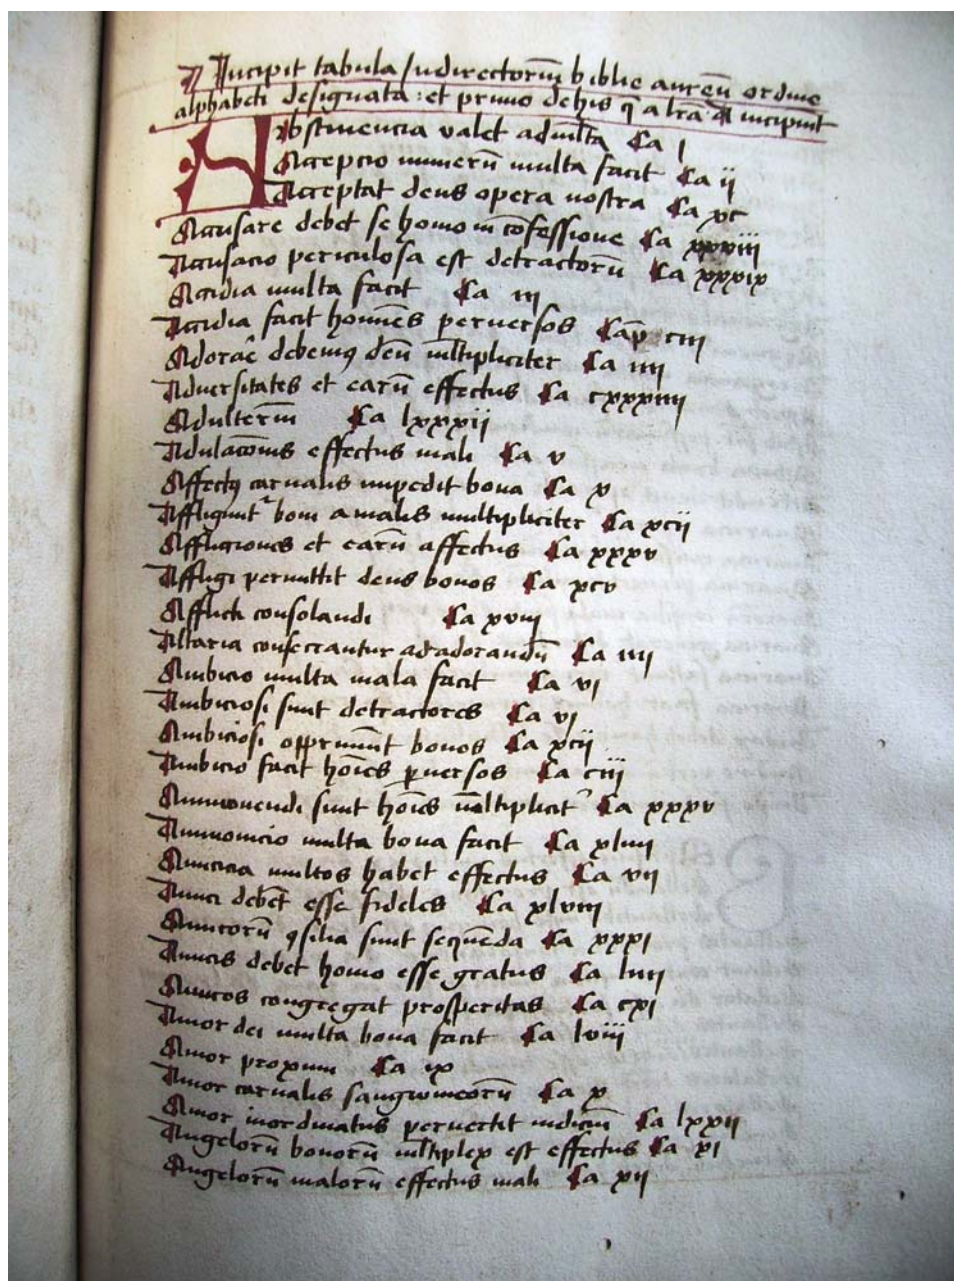 Incipit tabula Indirectoriū biblie aureū ordine
alphabeti designata : et primo de his q̄ a lr̄a A incipiunt
Abstinencia valet ad ml̄ta Ca i
Accepcio munerū multa facit Ca ii
Acceptat deus opera nostra Ca xc
Accusare debet se homo in cōfessione Ca xxxviii
Accusacio periculosa est detractorū Ca xxxix
Accidia multa facit Ca iii
Accidia facit homīes perversos Cap ciii
Adorār̄e debemꝰ deū ml̄tipliciter Ca iiii
Adversitates et earū effectus Ca cxxxiiii
Adulteriū Ca lxxxii
Adulacōnis effectus mali Ca v
Affectꝰ carnalis impedit bona Ca x
Affliguntᷣ boni a malis multipliciter Ca xcii
Affligiones et earū affectus Ca xxxv
Affligi permittit deus bonos Ca xcv
Afflicti consolandi Ca xviii
Altaria consecrantur ad adorandū Ca iiii
Ambicio multa mala facit Ca vi
Ambiciosi sunt detractores Ca vi
Ambiciosi opprimūnt bonos Ca xcii
Ambicio facit hoīes ꝑversos Ca ciii
Ammonendi sunt hoīes ml̄tiplicitᷣ Ca xxxv
Ammonicio multa bona facit Ca xlviii
Amicicia multos habet effectus Ca vii
Amici debēt esse fideles Ca xlviii
Amicorū ꝯsilia sunt sequēda Ca xxxi
Amicis debet homo esse gratus Ca liiii
Amicos congregat prosperitas Ca cxi
Amor dei multa bona facit Ca lviii
Amor proximi Ca ix
Amor carnalis sangwineorū Ca x
Amor inordinatus pervertit iudiciū Ca lxxii
Angelorū bonorū ml̄tiplex est effectus Ca xi
Angelorū malorū effectus mali Ca xii